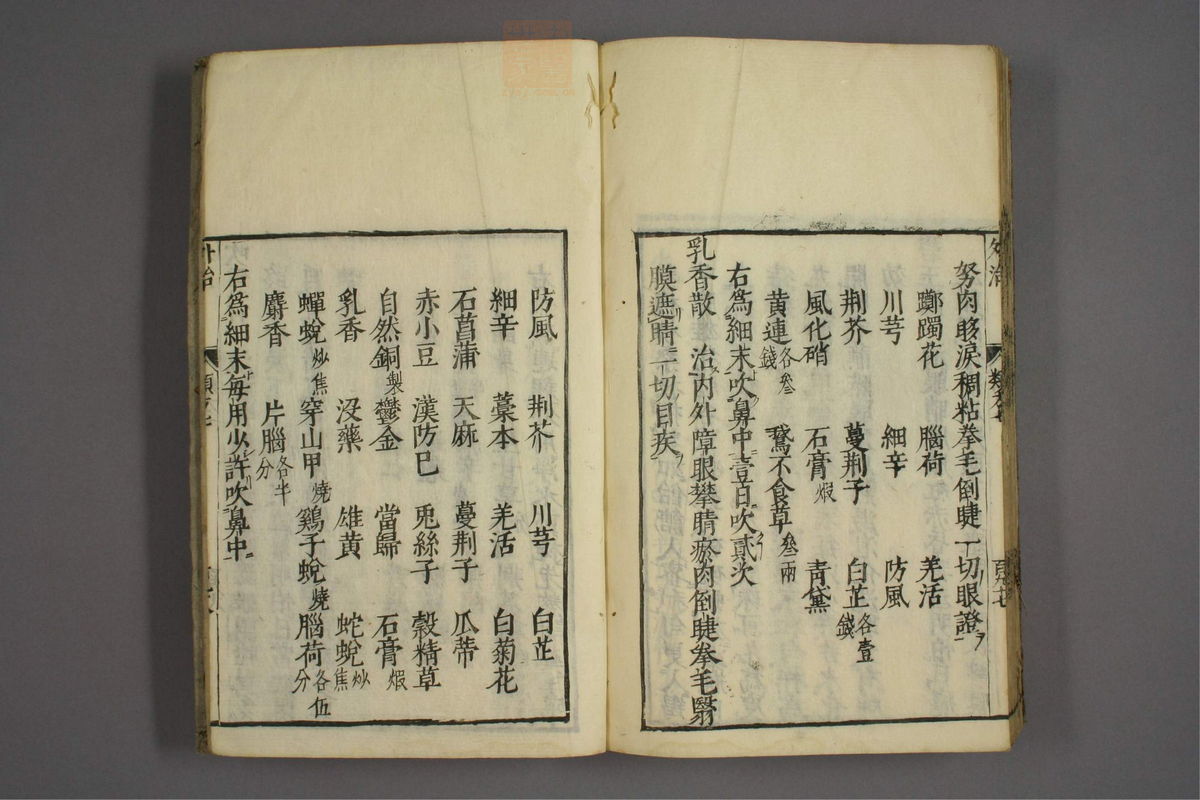 努肉眵淚稠粘拳毛倒睫一切眼證
躑躅花 腦荷 羌活
川芎 細辛 防風
荆芥 蔓荆子 白芷各壹錢
風化硝 石膏煆 青黛
黄連各叁錢 鵞不食草叁兩
右爲細末吹鼻中壹百吹貳次
乳香散 治内外障眼攀睛瘀肉倒睫拳毛翳
膜遮睛一切目疾
防風 荆芥 川芎 白芷
細辛 藁本 羌活 白菊花
石菖蒲 天麻 蔓荆子 瓜蒂
赤小豆 漢防巳 兎絲子 穀精草
自然銅製 鬱金 當歸 石膏煆
乳香 沒藥 雄黄 蛇蛻炒焦
蟬蛻炒焦 穿山甲燒 鷄子蛻燒 腦荷各伍分
麝香 片腦各半分
右爲細末每用少許吹鼻中
外治